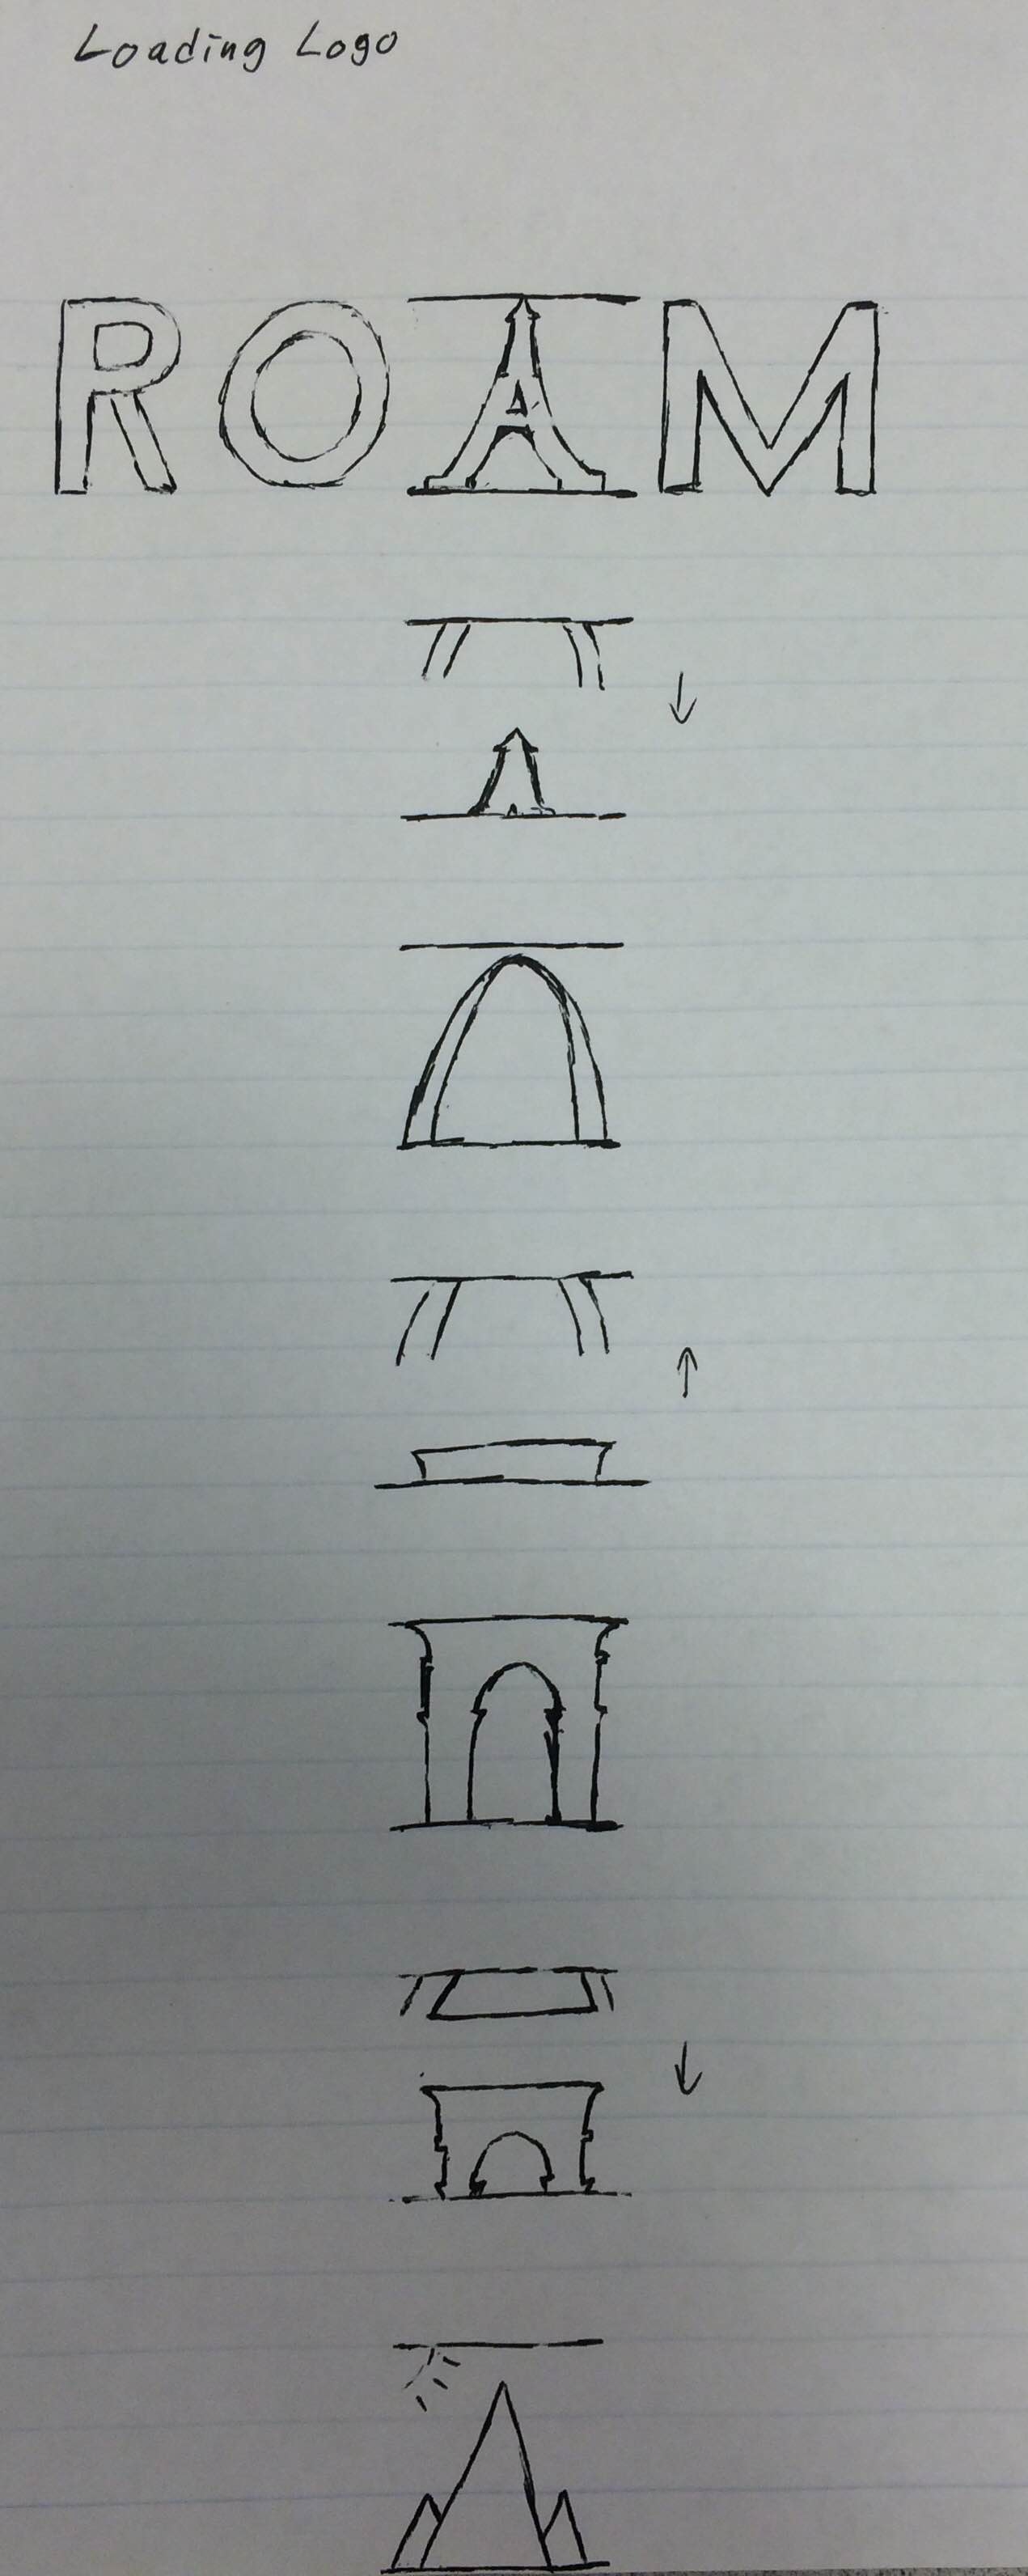 Loading Logo
ROAM